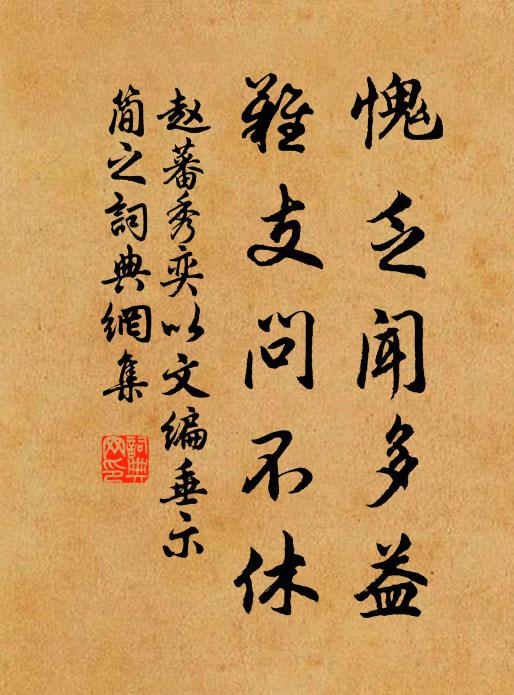 愧乏闻多益
难支问不休
赵蕃秀奕以文编垂示
简之词典网集
词典网印